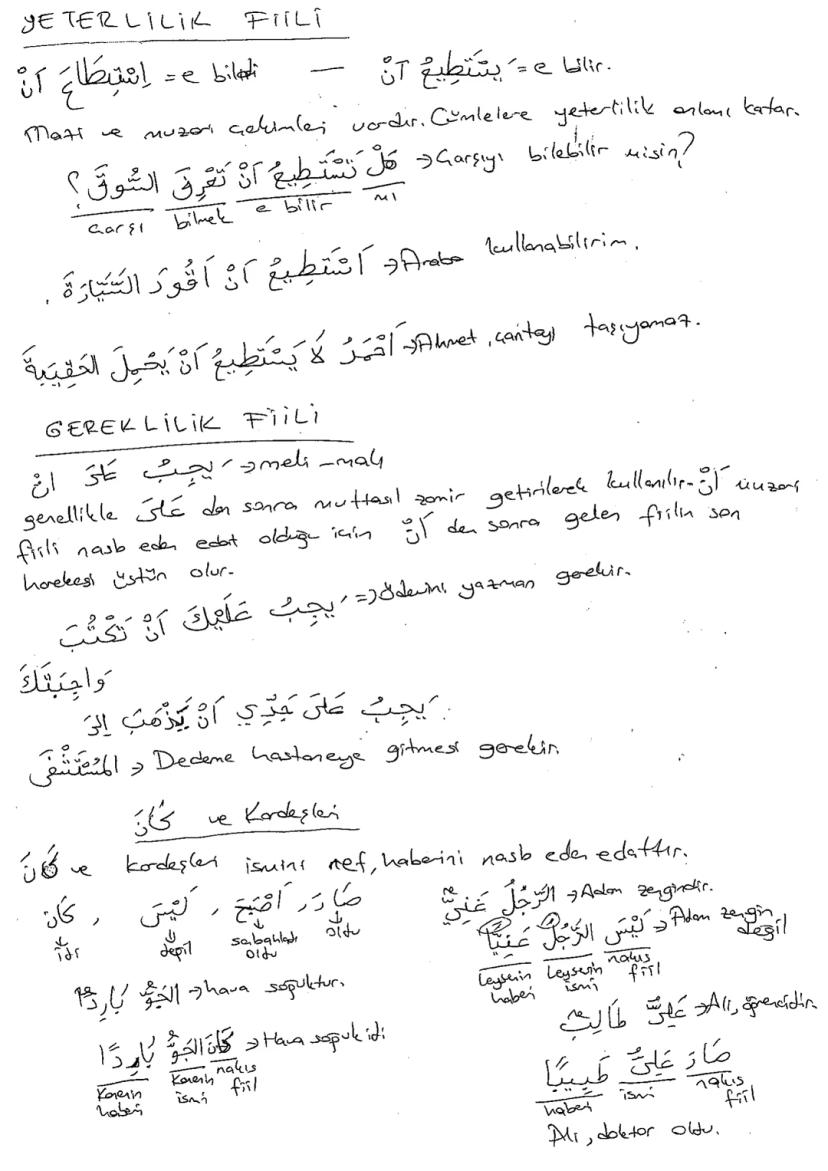 YETERLİLİK FİİLİ
اِسْتِطَاعَ اَنْ = e bildi — يَسْتَطِيعُ اَنْ = e bilir.
Mazi ve muzari çekimleri vardır. Cümlelere yeterlilik anlamı katar.
هَلْ تَسْتَطِيعُ اَنْ تَعْرِفَ السُّوقَ ؟ → Çarşıyı bilebilir misin?
çarşı bilmek e bilir mı
اَسْتَطِيعُ اَنْ اَقُودَ السَّيَّارَةَ . → Araba kullanabilirim.
اَحْمَدُ لَا يَسْتَطِيعُ اَنْ يَحْمِلَ الحَقِيبَةَ → Ahmet, çantayı taşıyamaz.
GEREKLİLİK FİİLİ
يَجِبُ عَلَى اَنْ → meli - malı
genellikle عَلَى dan sonra muttasıl zamir getirilerek kullanılır - اَنْ muzari
fiili nasb eden edat olduğu için اَنْ den sonra gelen fiilin son
harekesi üstün olur.
يَجِبُ عَلَيْكَ اَنْ تَكْتُبَ => Ödevini yazman gerekir.
وَاجِبَتَكَ
يَجِبُ عَلَى جَدِّي اَنْ يَذْهَبَ اِلَى
المُسْتَشْفَى → Dedeme hastaneye gitmesi gerekir.
كَانَ ve Kardeşleri
كَانَ ve kardeşleri ismini ref, haberini nasb eden edattır.
كَانَ , لَيْسَ , اَصْبَحَ , صَارَ
idi değil sabahladı oldu oldu
الرَّجُلُ غَنِيٌّ → Adam zengindir.
لَيْسَ الرَّجُلُ غَنِيًّا → Adam zengin değil
leysenin haberi leysenin ismi nakıs fiil
الجَوُّ بَارِدٌ → hava soğuktur.
عَلِيٌّ طَالِبٌ → Ali, öğrencidir.
كَانَ الجَوُّ بَارِدًا → Hava soğuk idi
Kanenin haberi Kanenin ismi nakıs fiil
صَارَ عَلِيٌّ طَبِيبًا
haberi ismi nakıs fiil
Ali, doktor oldu.